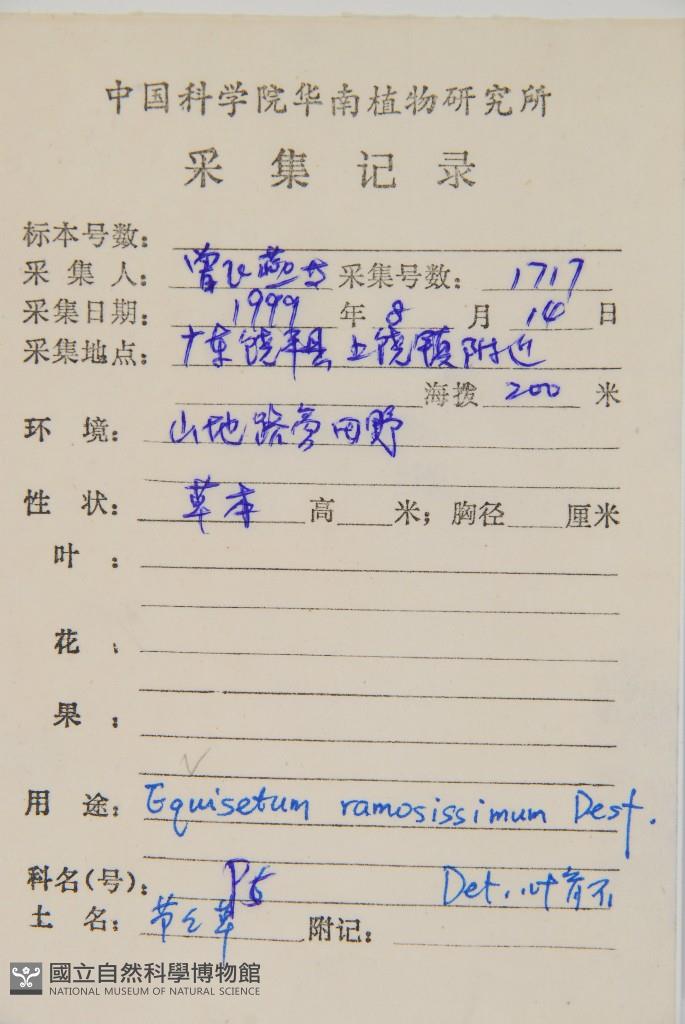 中国科学院华南植物研究所
采集记录
标本号数：
采集人：曾飞燕 采集号数：1717
采集日期：1999年8月14日
采集地点：广东饶平县上饶镇附近
海拨 200 米
环境：山地路旁田野
性状：草本 高 米；胸径 厘米
叶：
花：
果：
用途：Equisetum ramosissimum Desf.
科名(号)：P5 Det. 叶育石
土名：节节草 附记：
國立自然科學博物館
NATIONAL MUSEUM OF NATURAL SCIENCE